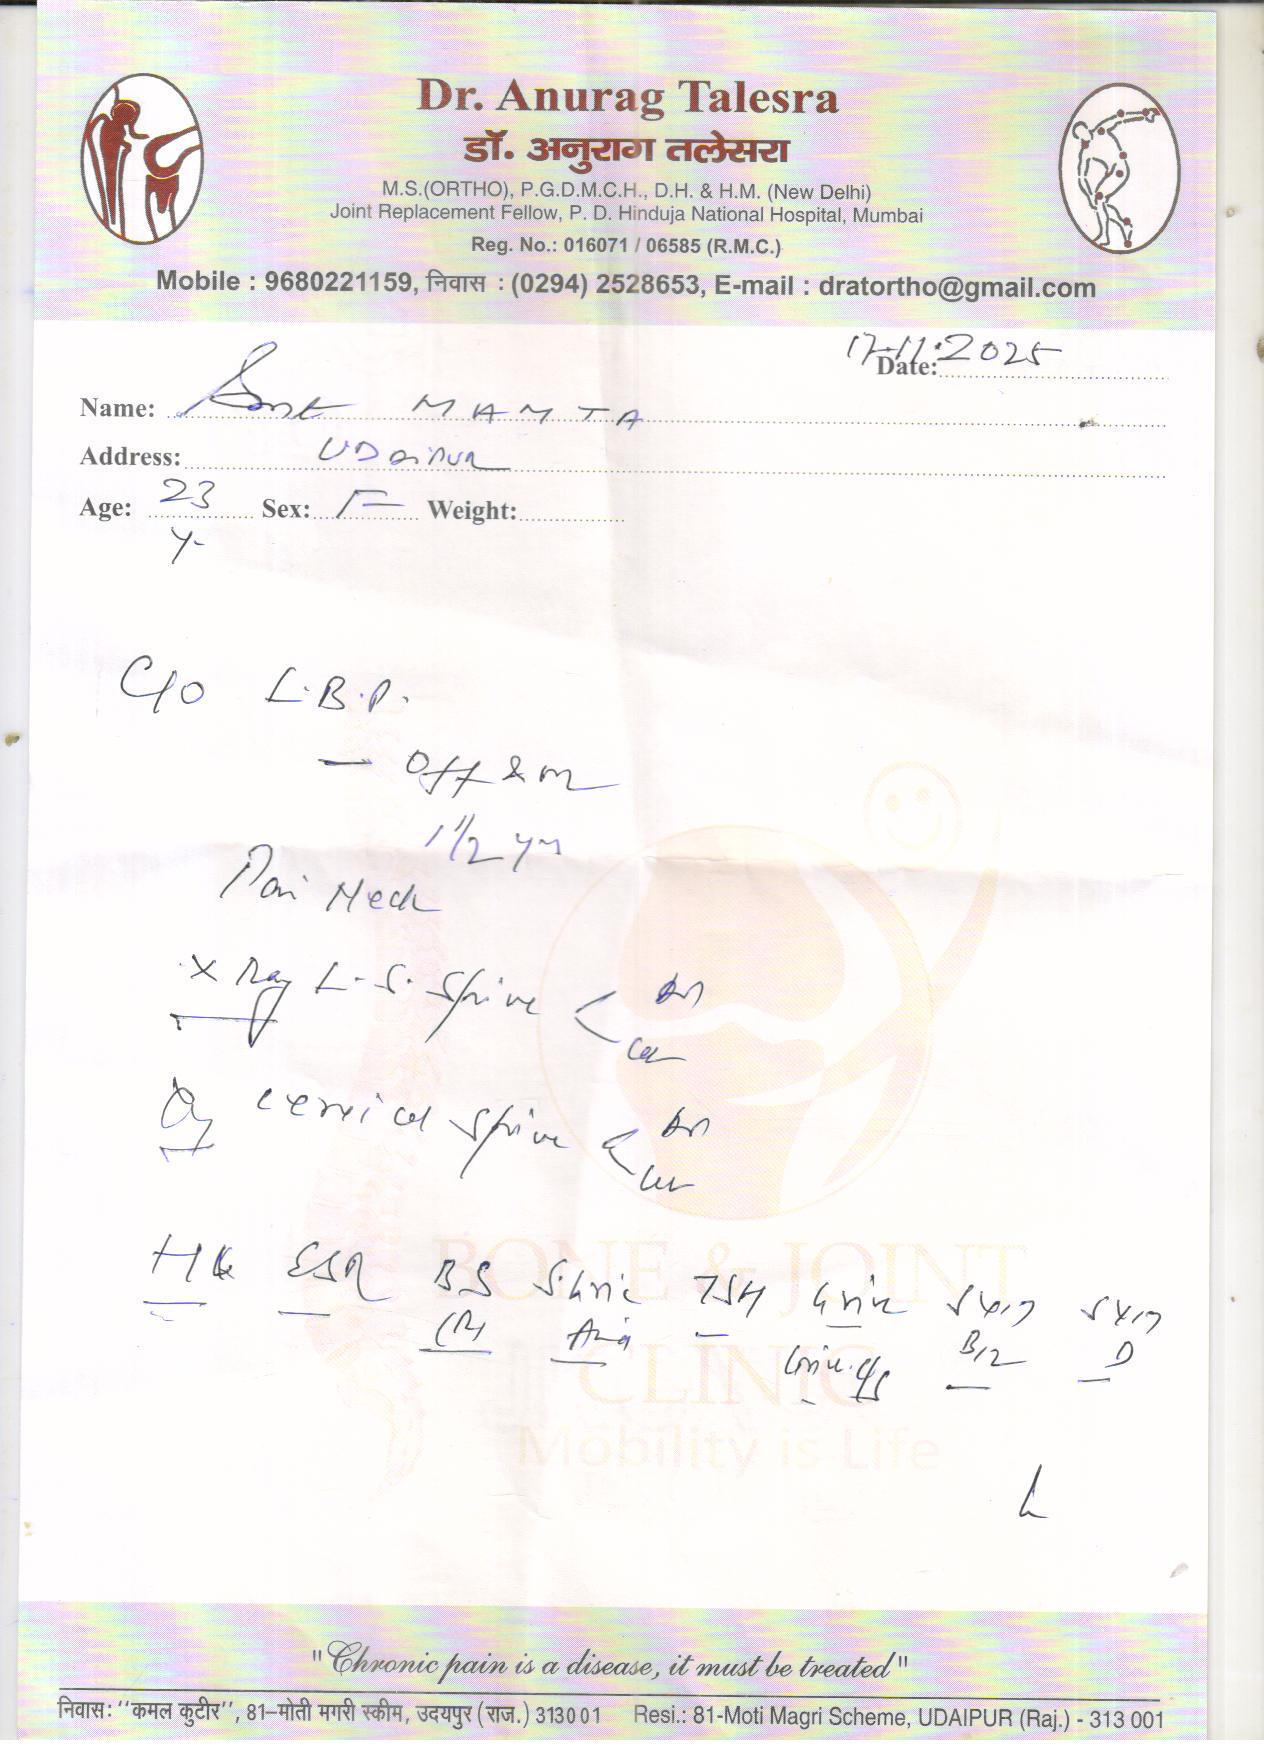 Dr. Anurag Talesra
डॉ. अनुराग तलेसरा
M.S.(ORTHO), P.G.D.M.C.H., D.H. & H.M. (New Delhi)
Joint Replacement Fellow, P. D. Hinduja National Hospital, Mumbai
Reg. No.: 016071 / 06585 (R.M.C.)
Mobile : 9680221159, निवास : (0294) 2528653, E-mail : dratortho@gmail.com
Date: 17.11.2025
Name: Smt MAMTA
Address: UDAIPUR
Age: 23 Sex: F Weight:
Y-
C/o L.B.P.
- Off & on
1 1/2 yr
Pain Neck
X Ray L-S. Spine < AP
Lat
Cervical Spine < AP
Lat
Hb ESR BS S. Uric TSH Urine S Vit S Vit
(R) Acid Urine C/S B12 D
BONE & JOINT
CLINIC
Mobility is Life
"Chronic pain is a disease, it must be treated"
निवास: ''कमल कुटीर'', 81-मोती मगरी स्कीम, उदयपुर (राज.) 313001 Resi.: 81-Moti Magri Scheme, UDAIPUR (Raj.) - 313 001